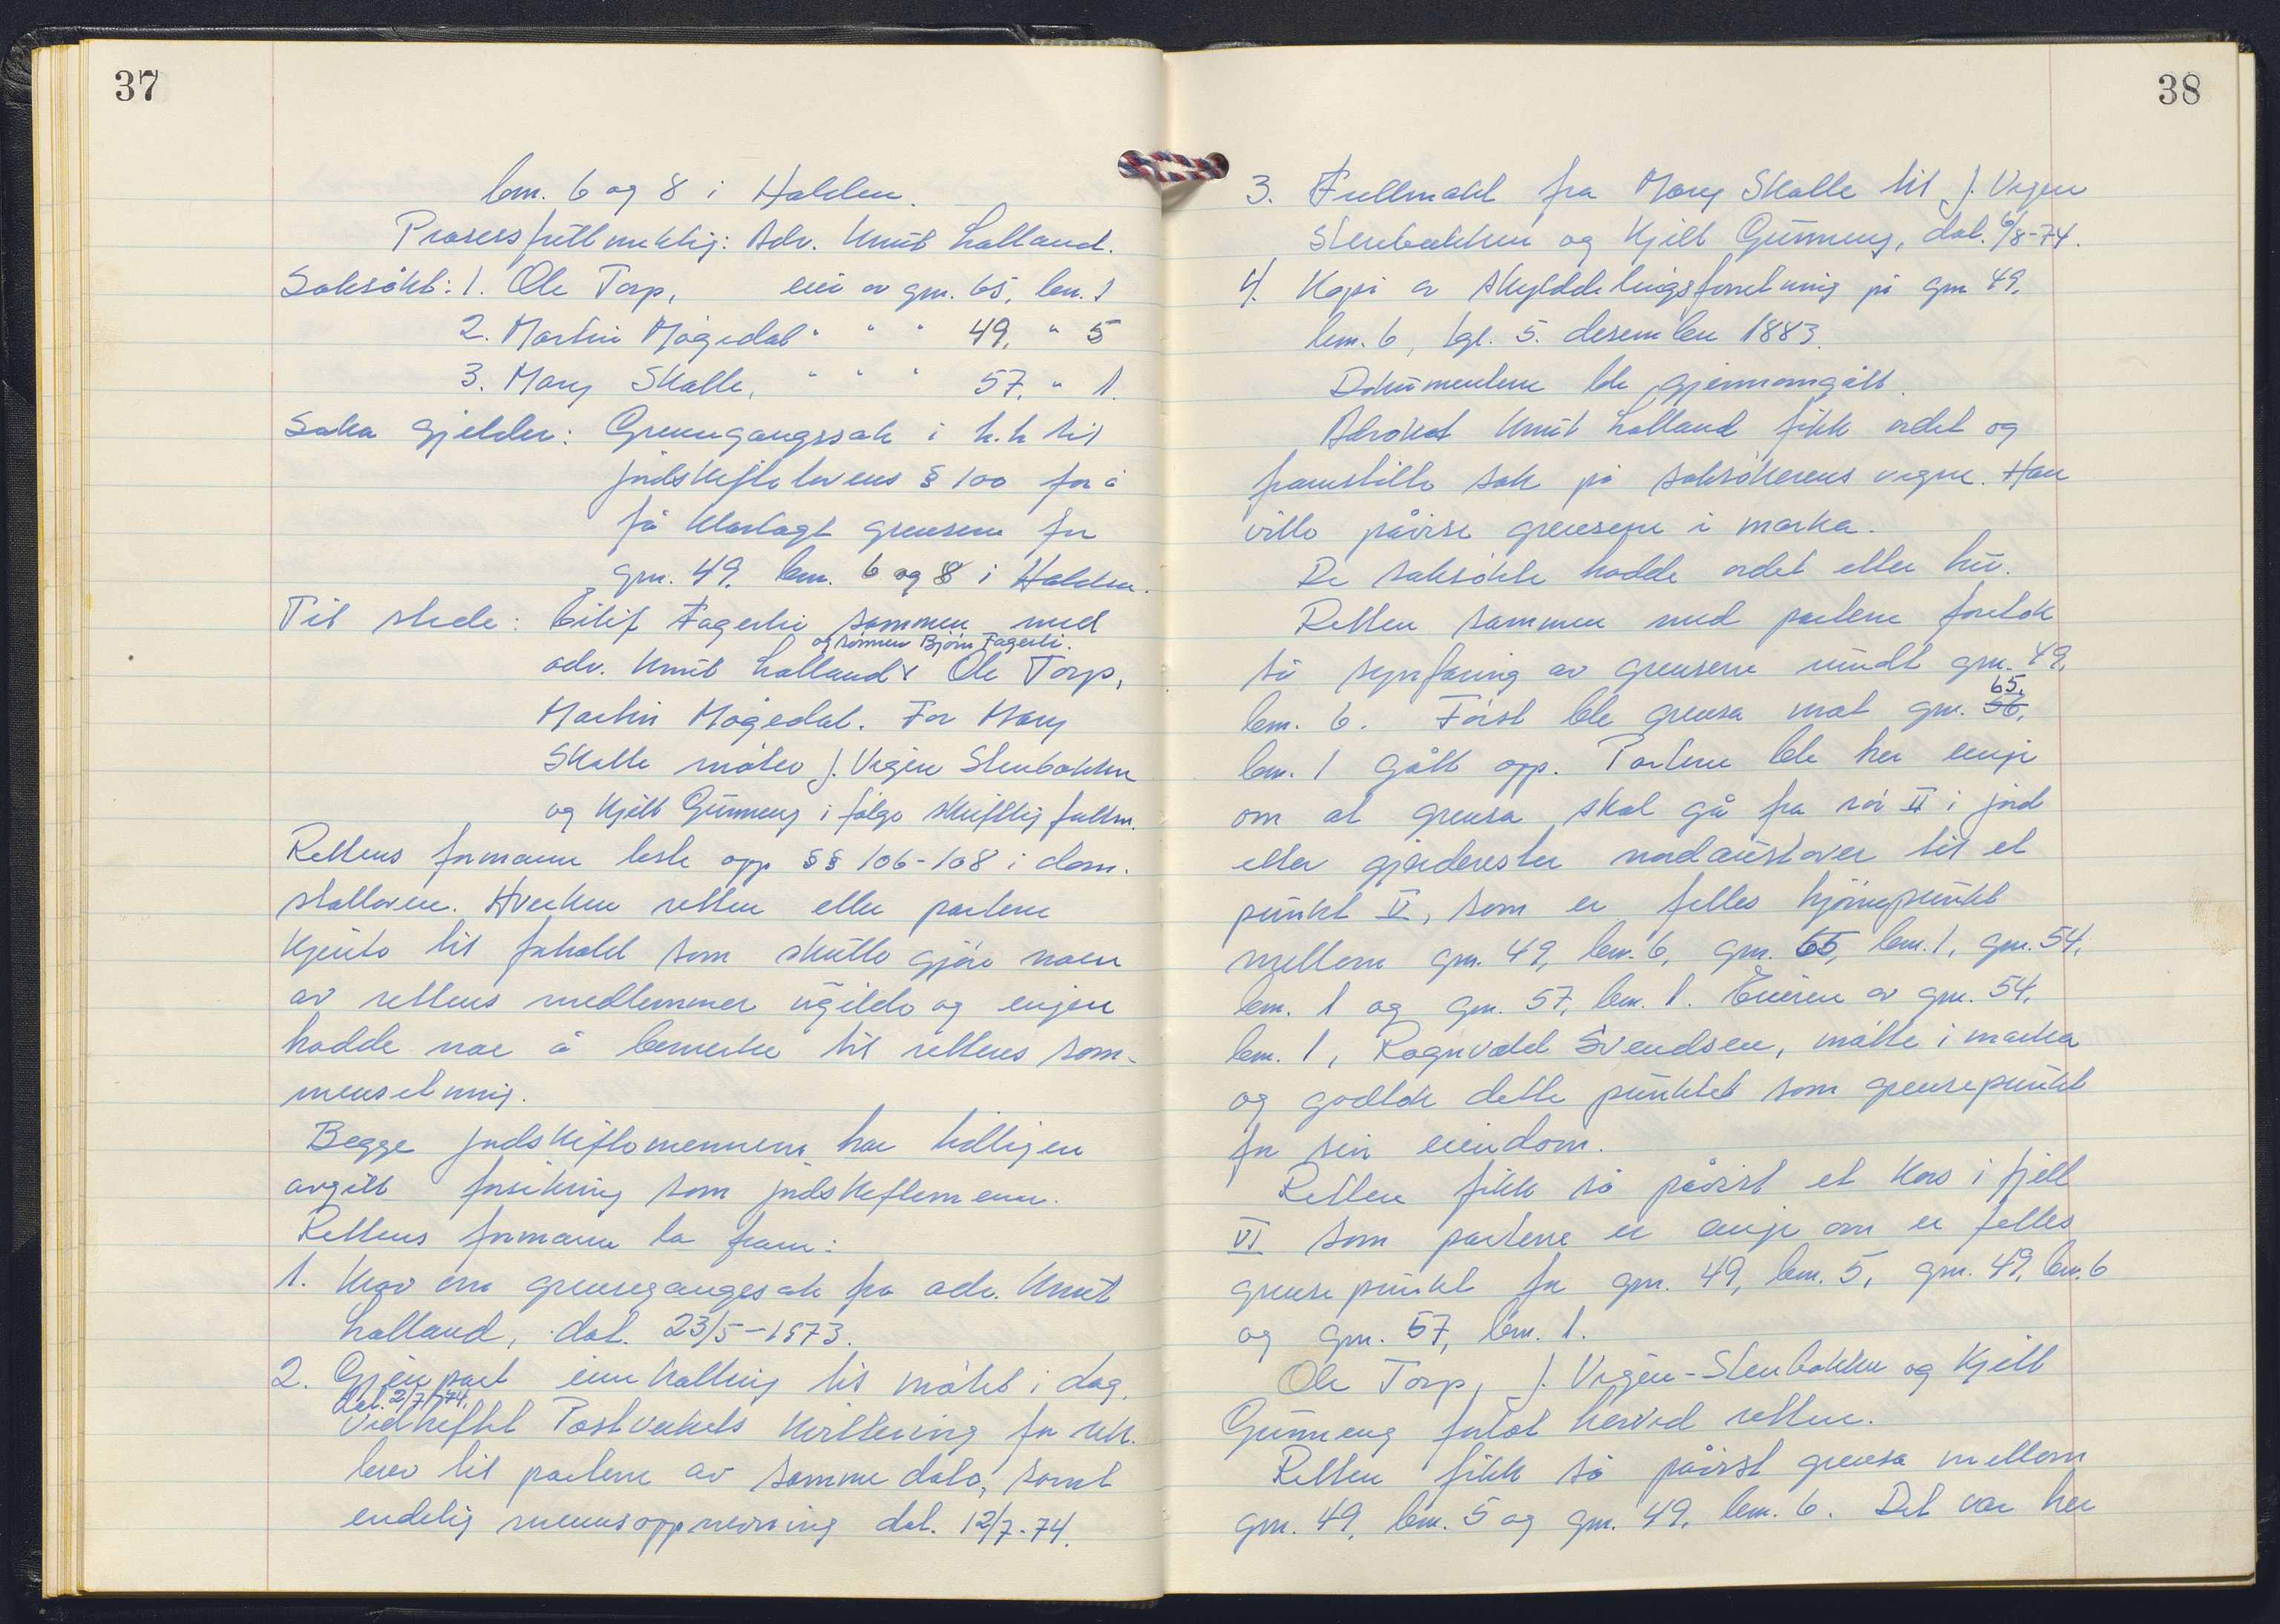 37
bnr. 6 og 8 i Halden.
Prosessfullmektig: Adv. Knut Lalland.
Saksøkt: 1. Ole Torp, eier av gnr. 65, bnr. 1
2. Martin Mågedal " " " 49, " 5
3. Mary Skalle, " " " 57, " 1.
Saka gjelder: Grensegangssak i h.h til
jordskiftelovens § 100 for å
få klarlagt grensene for
gnr. 49, bnr. 6 og 8 i Halden.
Til stede: Eilif Fagerli sammen med
og sønnen Bjørn Fagerli.
adv. Knut Lalland x Ole Torp,
Martin Mågedal. For Mary
Skalle møter J. Vigen Stenbekken
og Kjell Gunneng i følge skriftlig fullm.
Rettens formann leste opp §§ 106-108 i dom-
stolloven. Hverken retten eller partene
kjente til forhold som skulle gjøre noen
av rettens medlemmer ugilde og ingen
hadde noe å bemerke til rettens sam-
mensetning.
Begge jordskiftemennene har tidligere
avgitt forsikring som jordskiftemenn.
Rettens formann la fram:
1. Krav om grensegangssak fra adv. Knut
Lalland, dat. 23/5-1973.
2. Gjenpart innkalling til møtet i dag,
dat. 2/7/74.
vedheftet Postverkets kvittering for rek.
brev til partene av samme dato, samt
endelig mennsoppnevning dat. 12/7-74.
38
3. Fullmakt fra Mary Skalle til J. Vigen
Stenbekken og Kjell Gunneng, dat. 6/8-74.
4. Kopi av skylddelingsforretning på gnr 49,
bnr. 6, tgl. 5. desember 1883.
Dokumentene ble gjennomgått.
Advokat Knut Lalland fikk ordet og
framstilte sak på saksøkerens vegne. Han
ville påvise grensene i marka.
De saksøkte hadde ordet etter tur.
Retten sammen med partene foretok
så synfaring av grensene rundt gnr. 49,
65,
bnr. 6. Først ble grensa mot gnr. 56,
bnr. 1 gått opp. Partene ble her enige
om at grensa skal gå fra rør II i jord
etter gjerderester nordaustover til et
punkt V, som er felles hjørnepunkt
mellom gnr. 49, bnr. 6, gnr. 65, bnr. 1, gnr. 54,
bnr. 1 og gnr. 57, bnr. 1. Eieren av gnr. 54,
bnr. 1, Ragnvald Svendsen, møtte i marka
og godtok dette punktet som grensepunkt
for sin eiendom.
Retten fikk så påvist et kors i fjell
VI som partene er enige om er felles
grensepunkt for gnr. 49, bnr. 5, gnr. 49, bnr. 6
og gnr. 57, bnr. 1.
Ole Torp, J. Vigen-Stenbekken og Kjell
Gunneng forlot herved retten.
Retten fikk så påvist grensa mellom
gnr. 49, bnr. 5 og gnr. 49, bnr. 6. Det var her